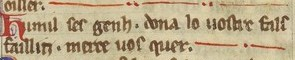 oiller.
Humil ses genh. dona lo vostre fals
failliri. merce vos quer.